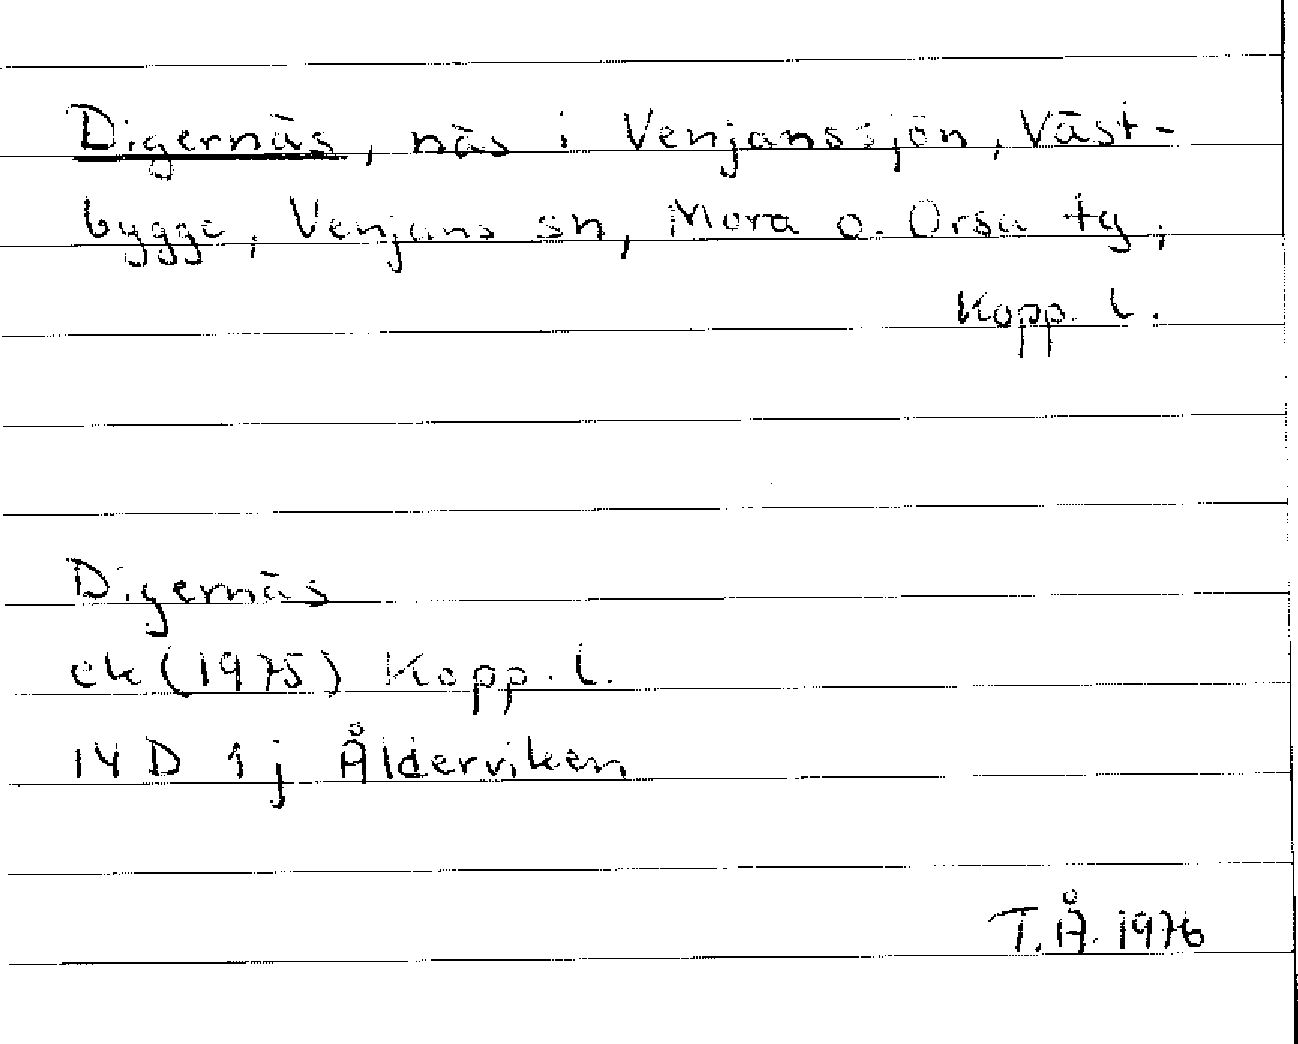 Digernäs, näs i Venjanssjön, Väst-
bygge, Venjans sn, Mora o. Orsa tg,
Kopp. l.
Digernäs
ek (1975) Kopp. l.
14 D 1 j Ålderviken
T.Å. 1976